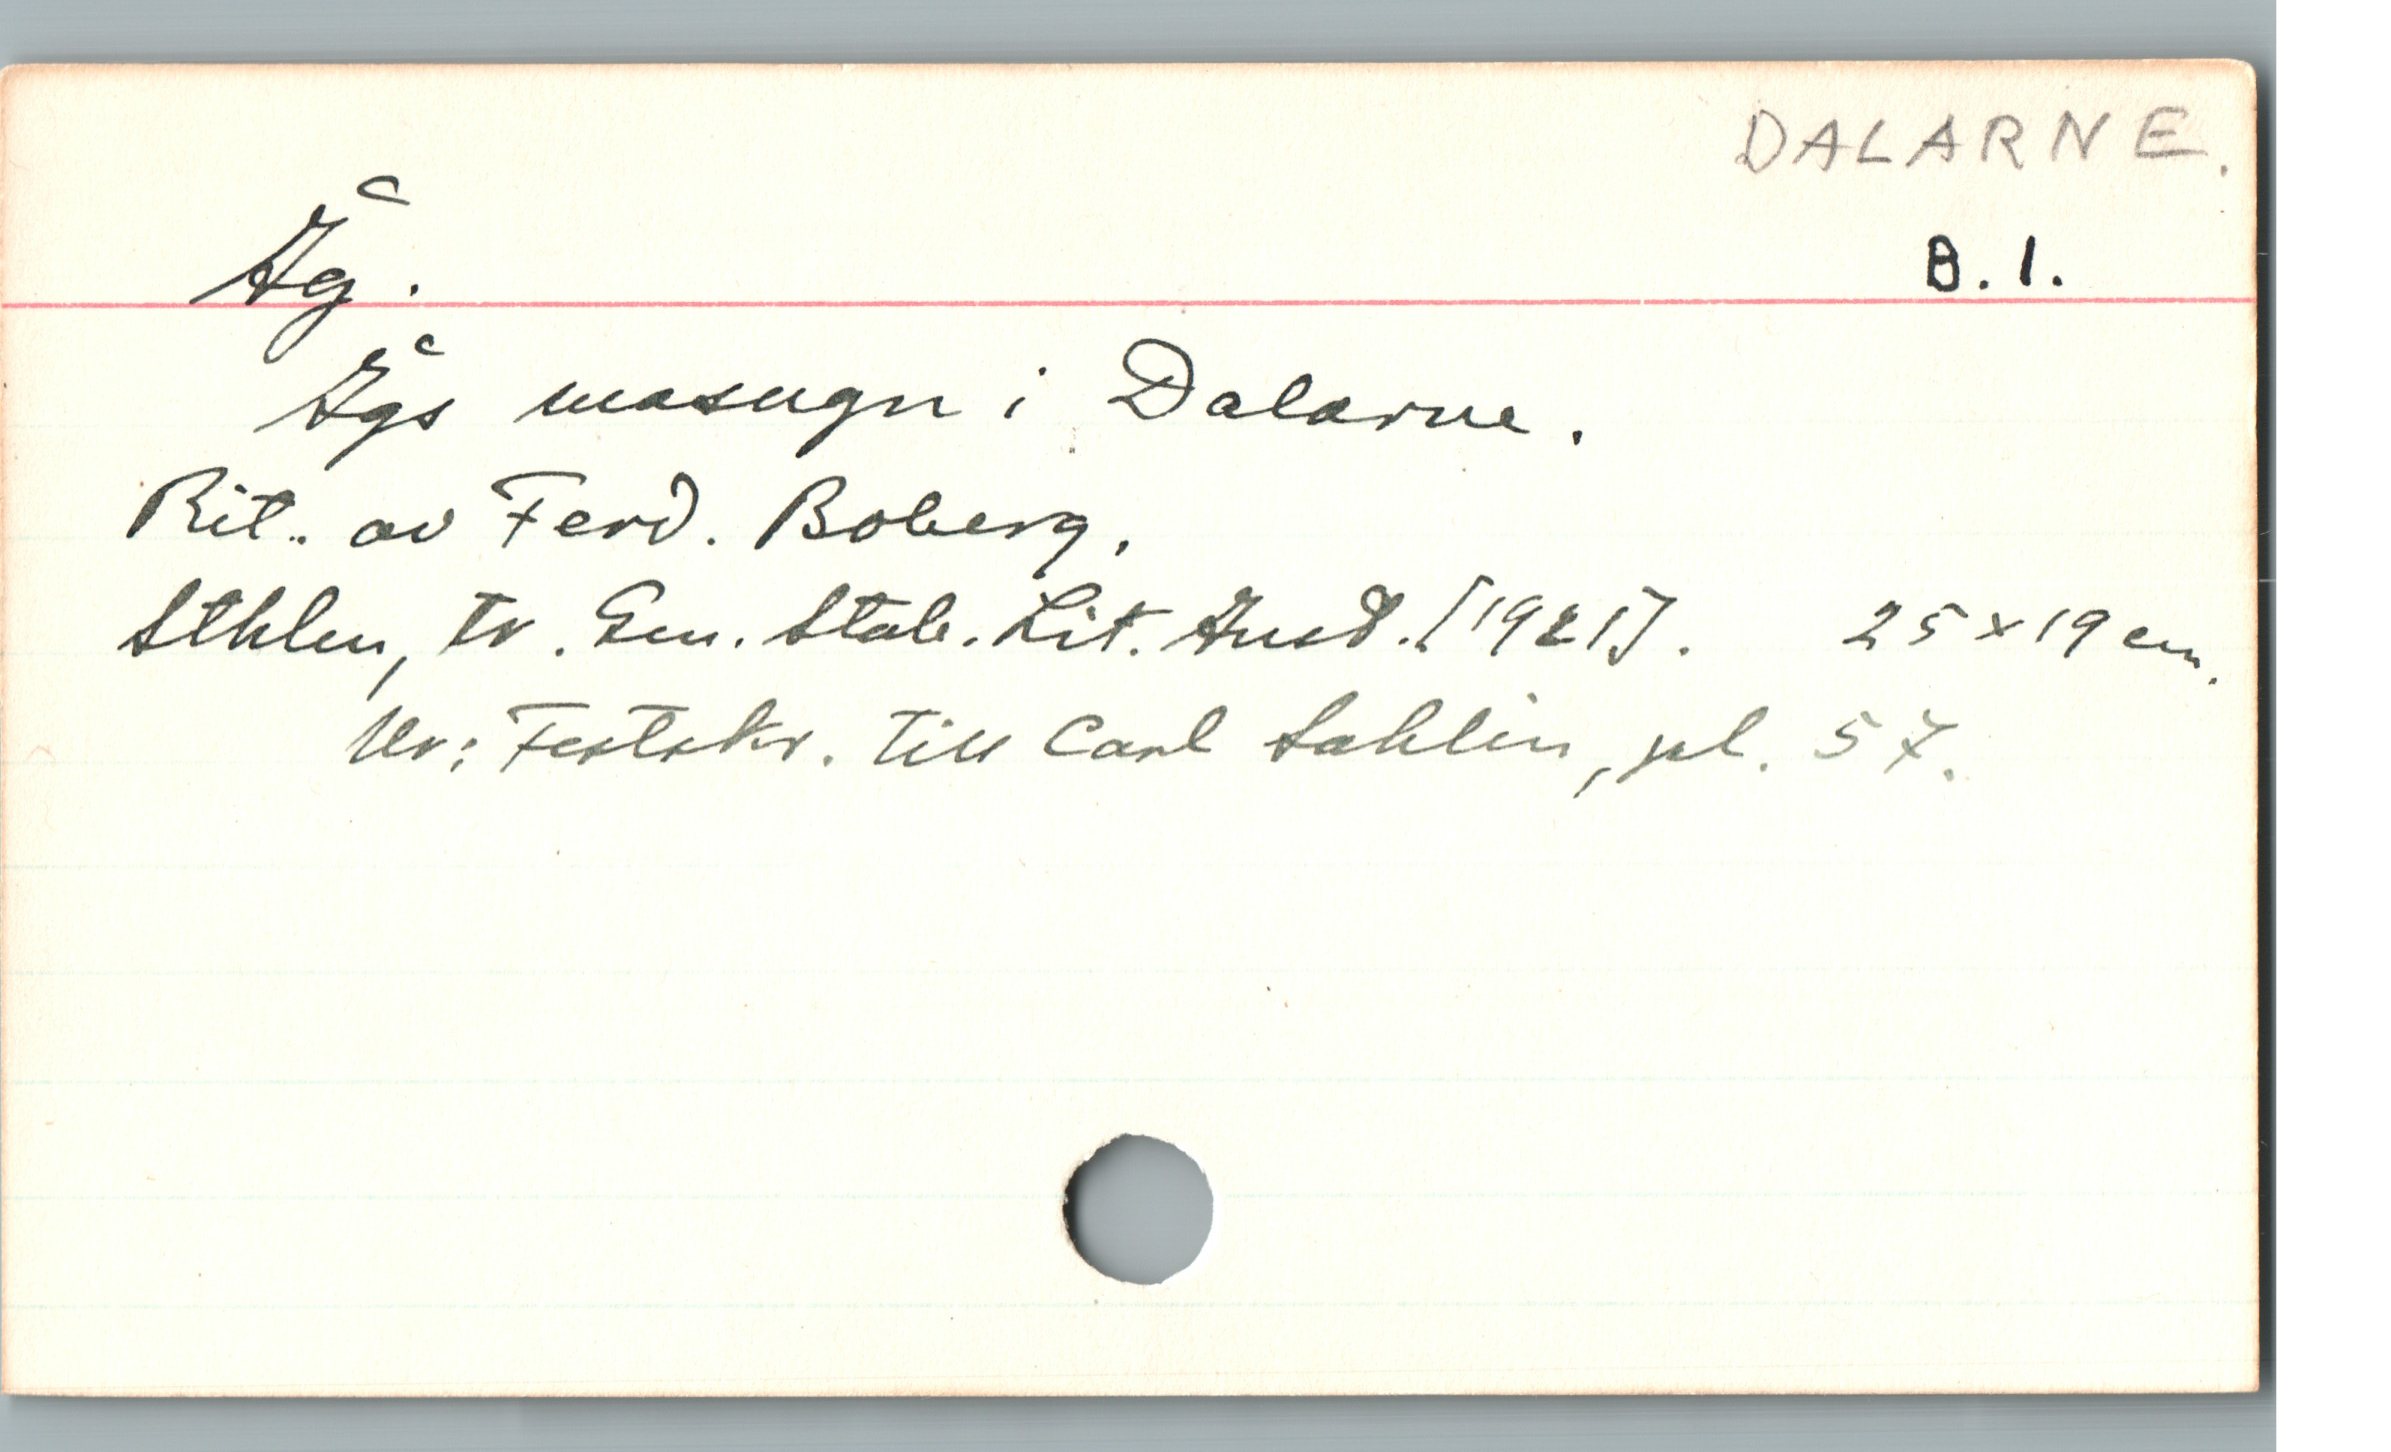 DALARNE.
Åg.
B. 1.
Ågs masugn i Dalarne.
Rit. av Ferd. Boberg.
Sthlm, tr. Gen. Stab. Lit. Anst. [1921]. 25 x 19 cm.
Ur: Festskr. till Carl Sahlin, pl. 57.